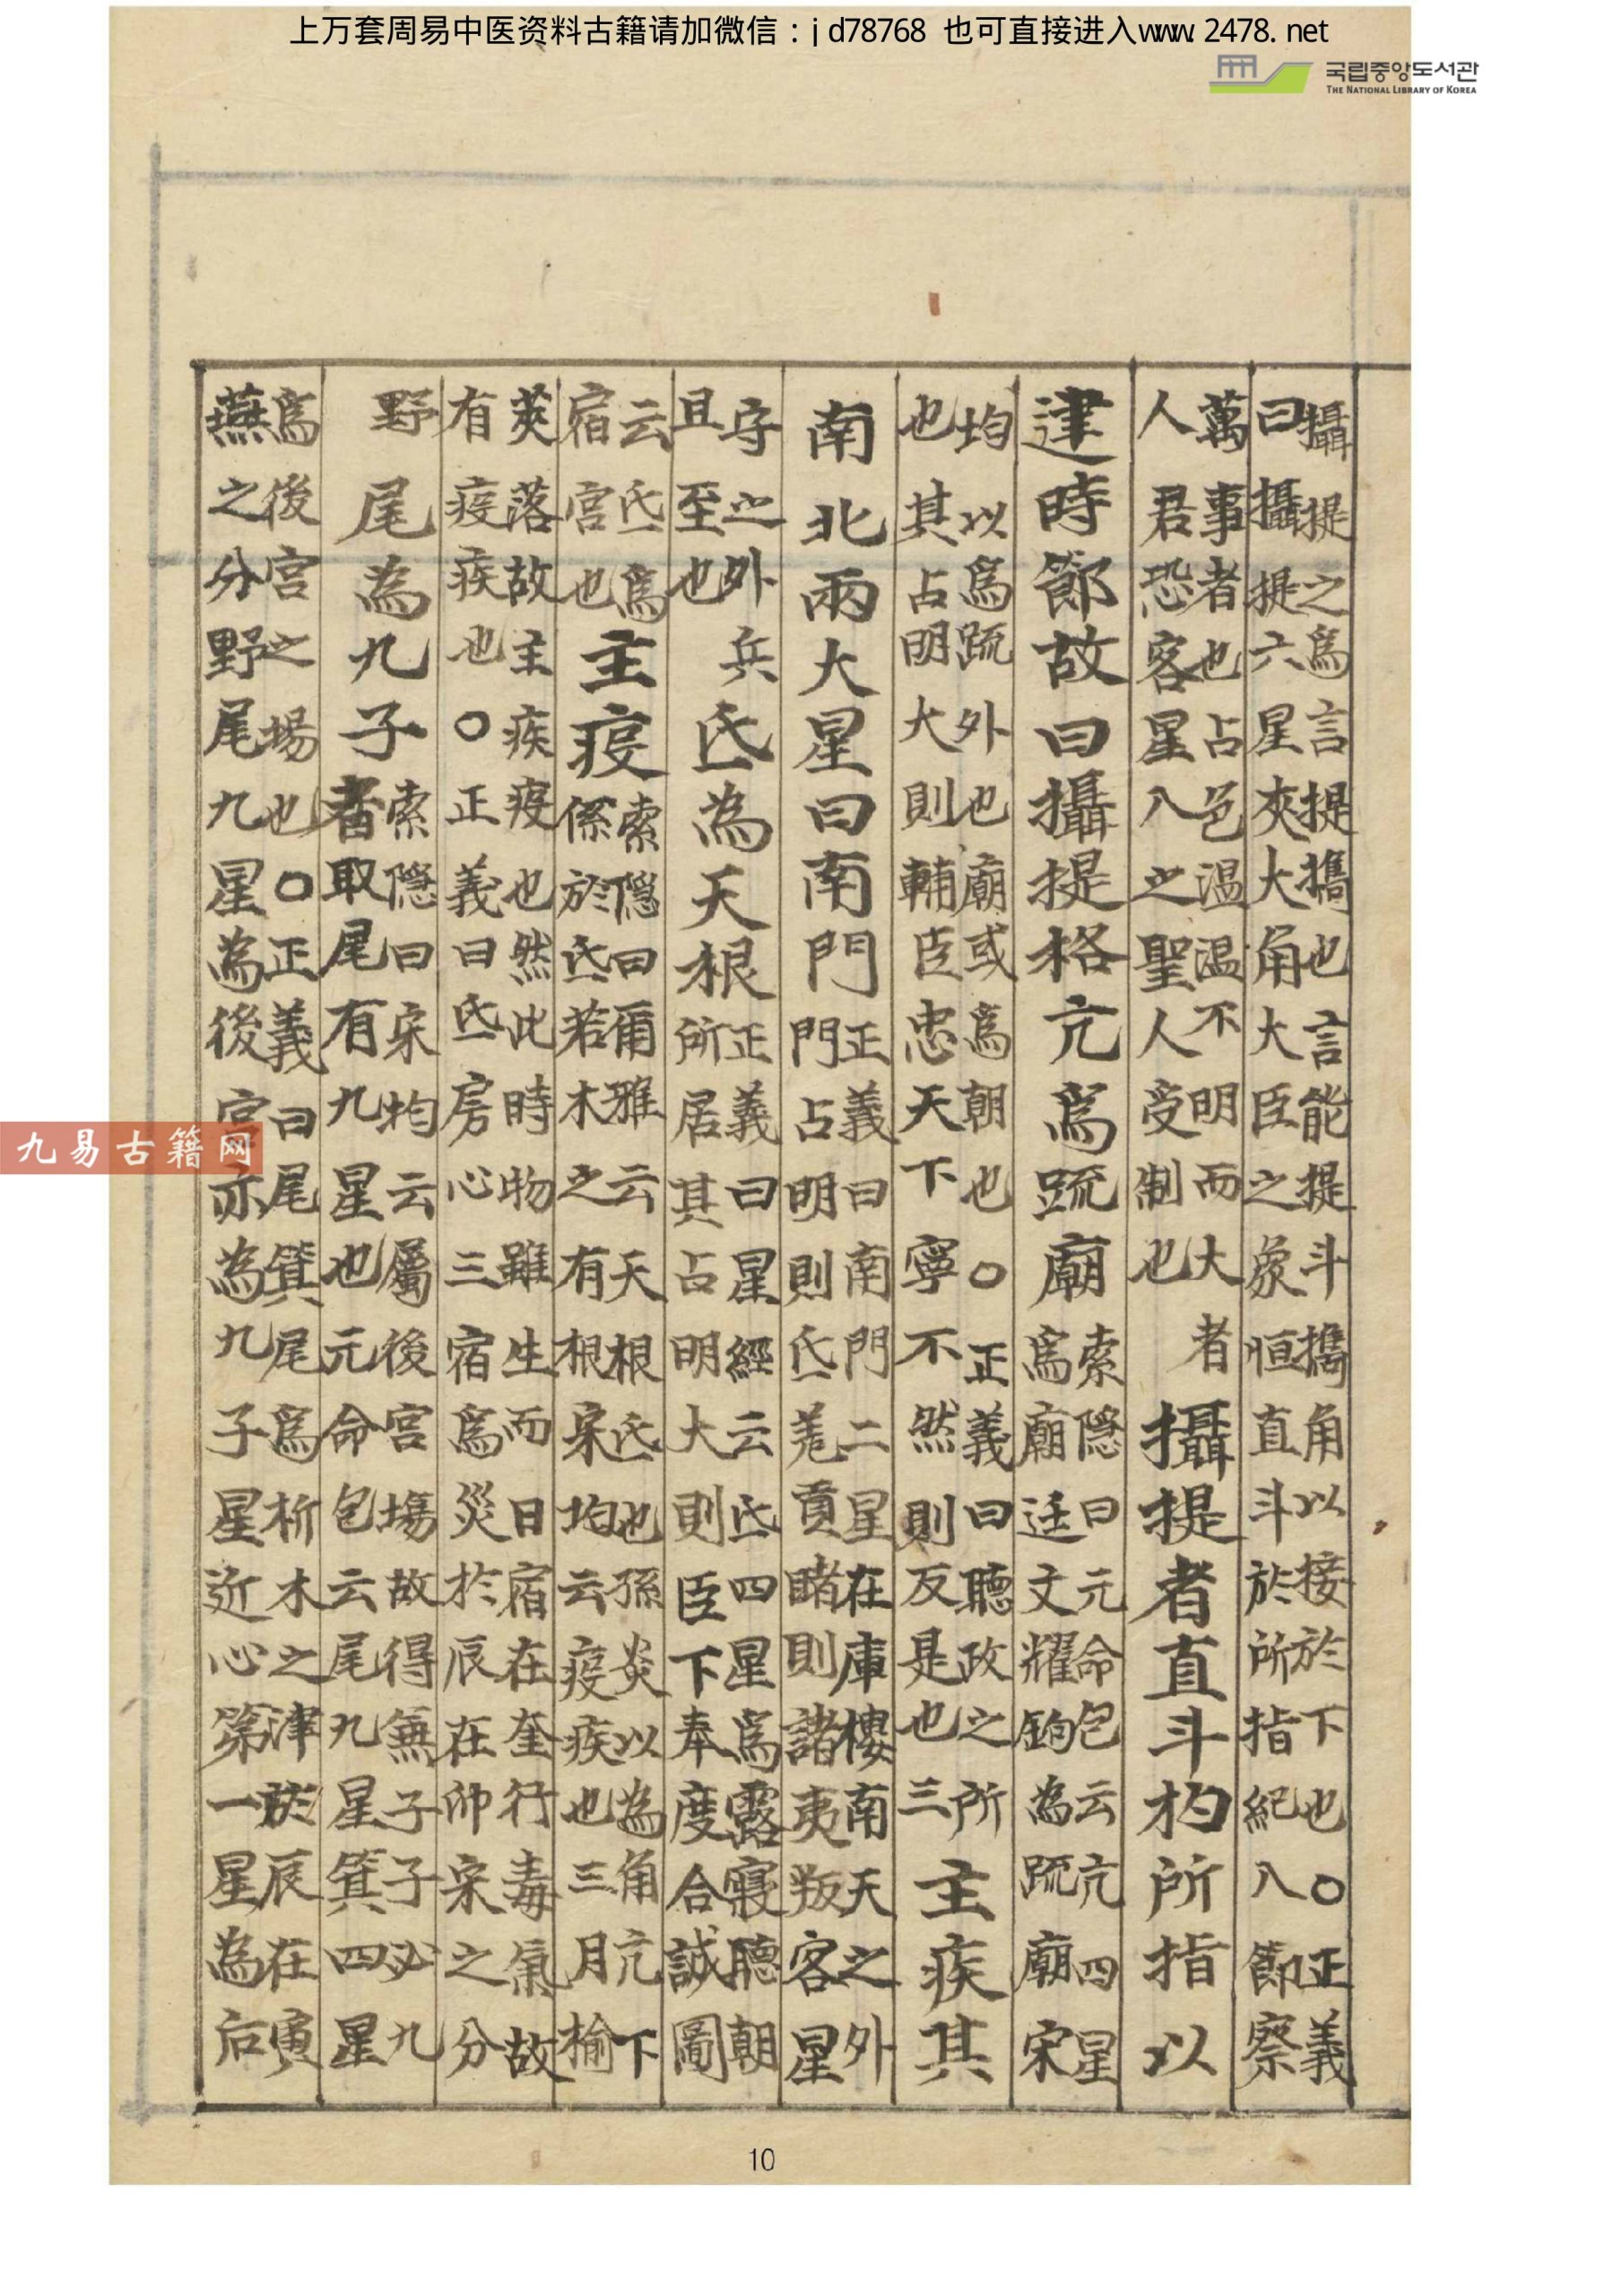 上万套周易中医资料古籍请加微信：jd78768 也可直接进入www.2478.net
국립중앙도서관
THE NATIONAL LIBRARY OF KOREA
攝提之爲言提攜也言能提斗攜角以接於下也○正義
曰攝提六星夾大角大臣之象恒直斗於所指紀八節察
萬事者也占色溫溫不明而大者
人君恐客星入之聖人受制也
攝提者直斗杓所指以
建時節故曰攝提格亢爲疏廟
索隱曰元命包云亢四星
爲廟廷文耀鉤為疏廟宋
均以爲疏外也廟或爲朝也○正義曰聽政之所
也其占明大則輔臣忠天下寧不然則反是也三
主疾其
南北兩大星曰南門
正義曰南門二星在庫樓南天之外
門占明則氐羌貢睹則諸夷叛客星
守之外兵
且至也
氐為天根
正義曰星經云氐四星爲露寢聽朝
所居其占明大則臣下奉度合誠圖
云氐爲
宿宮也
主疫
索隱曰爾雅云天根氐也孫炎以為角亢下
係於氐若木之有根宋均云疫疾也三月榆
莢落故主疾疫也然此時物雖生而日宿在奎行毒氣故
有疫疾也○正義曰氐房心三宿爲災於辰在卯宋之分
野
尾為九子
索隱曰宋均云屬後宮場故得無子子必九
者取尾有九星也元命包云尾九星箕四星
爲後宮之場也○正義曰尾箕尾爲析木之津於辰在寅
燕之分野尾九星為後宮亦為九子星近心第一星為后
九易古籍网
10